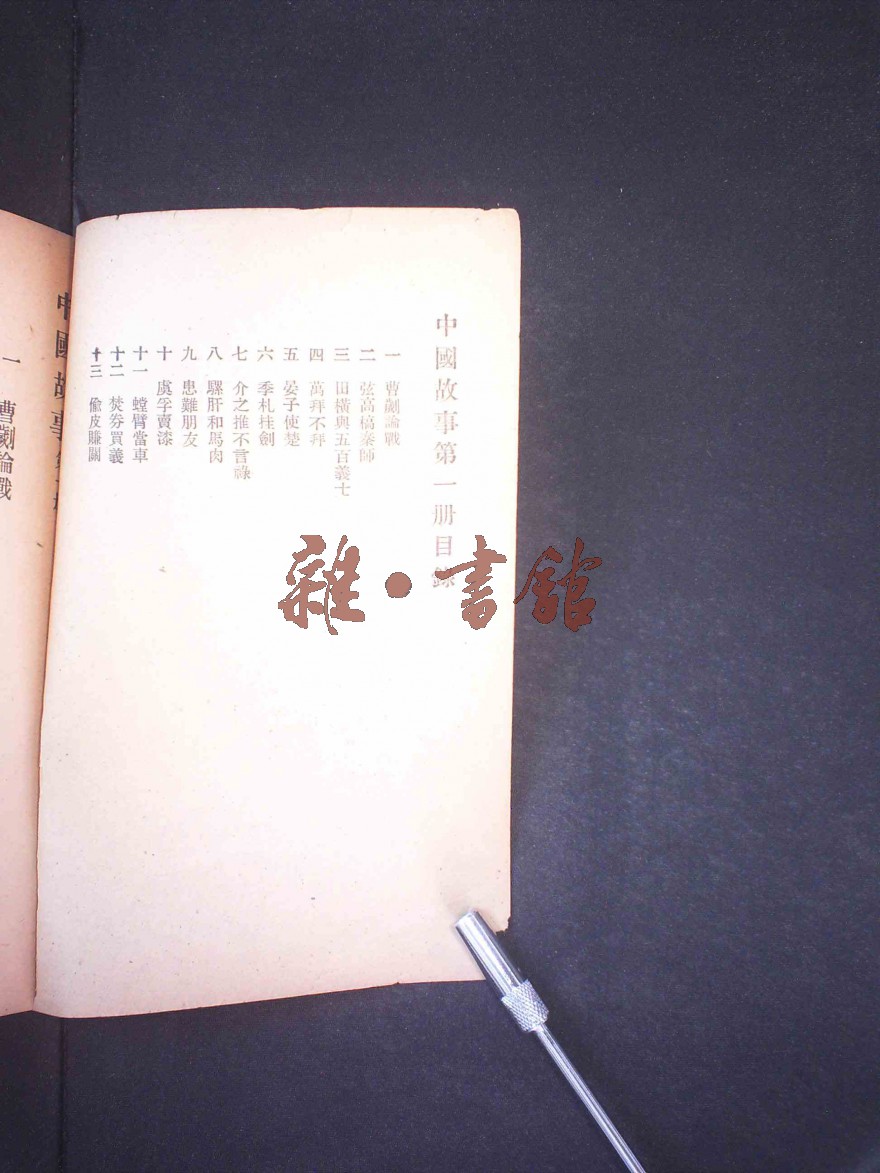 中國故事第一册目錄
一 曹劌論戰
二 弦高犒秦師
三 田橫與五百義士
四 萬拜不拜
五 晏子使楚
六 季札挂劍
七 介之推不言祿
八 騾肝和馬肉
九 患難朋友
十 虞孚賣漆
十一 螳臂當車
十二 焚券買義
十三 偷皮賺關
中國故事第一册
一 曹劌論戰
雜·書館